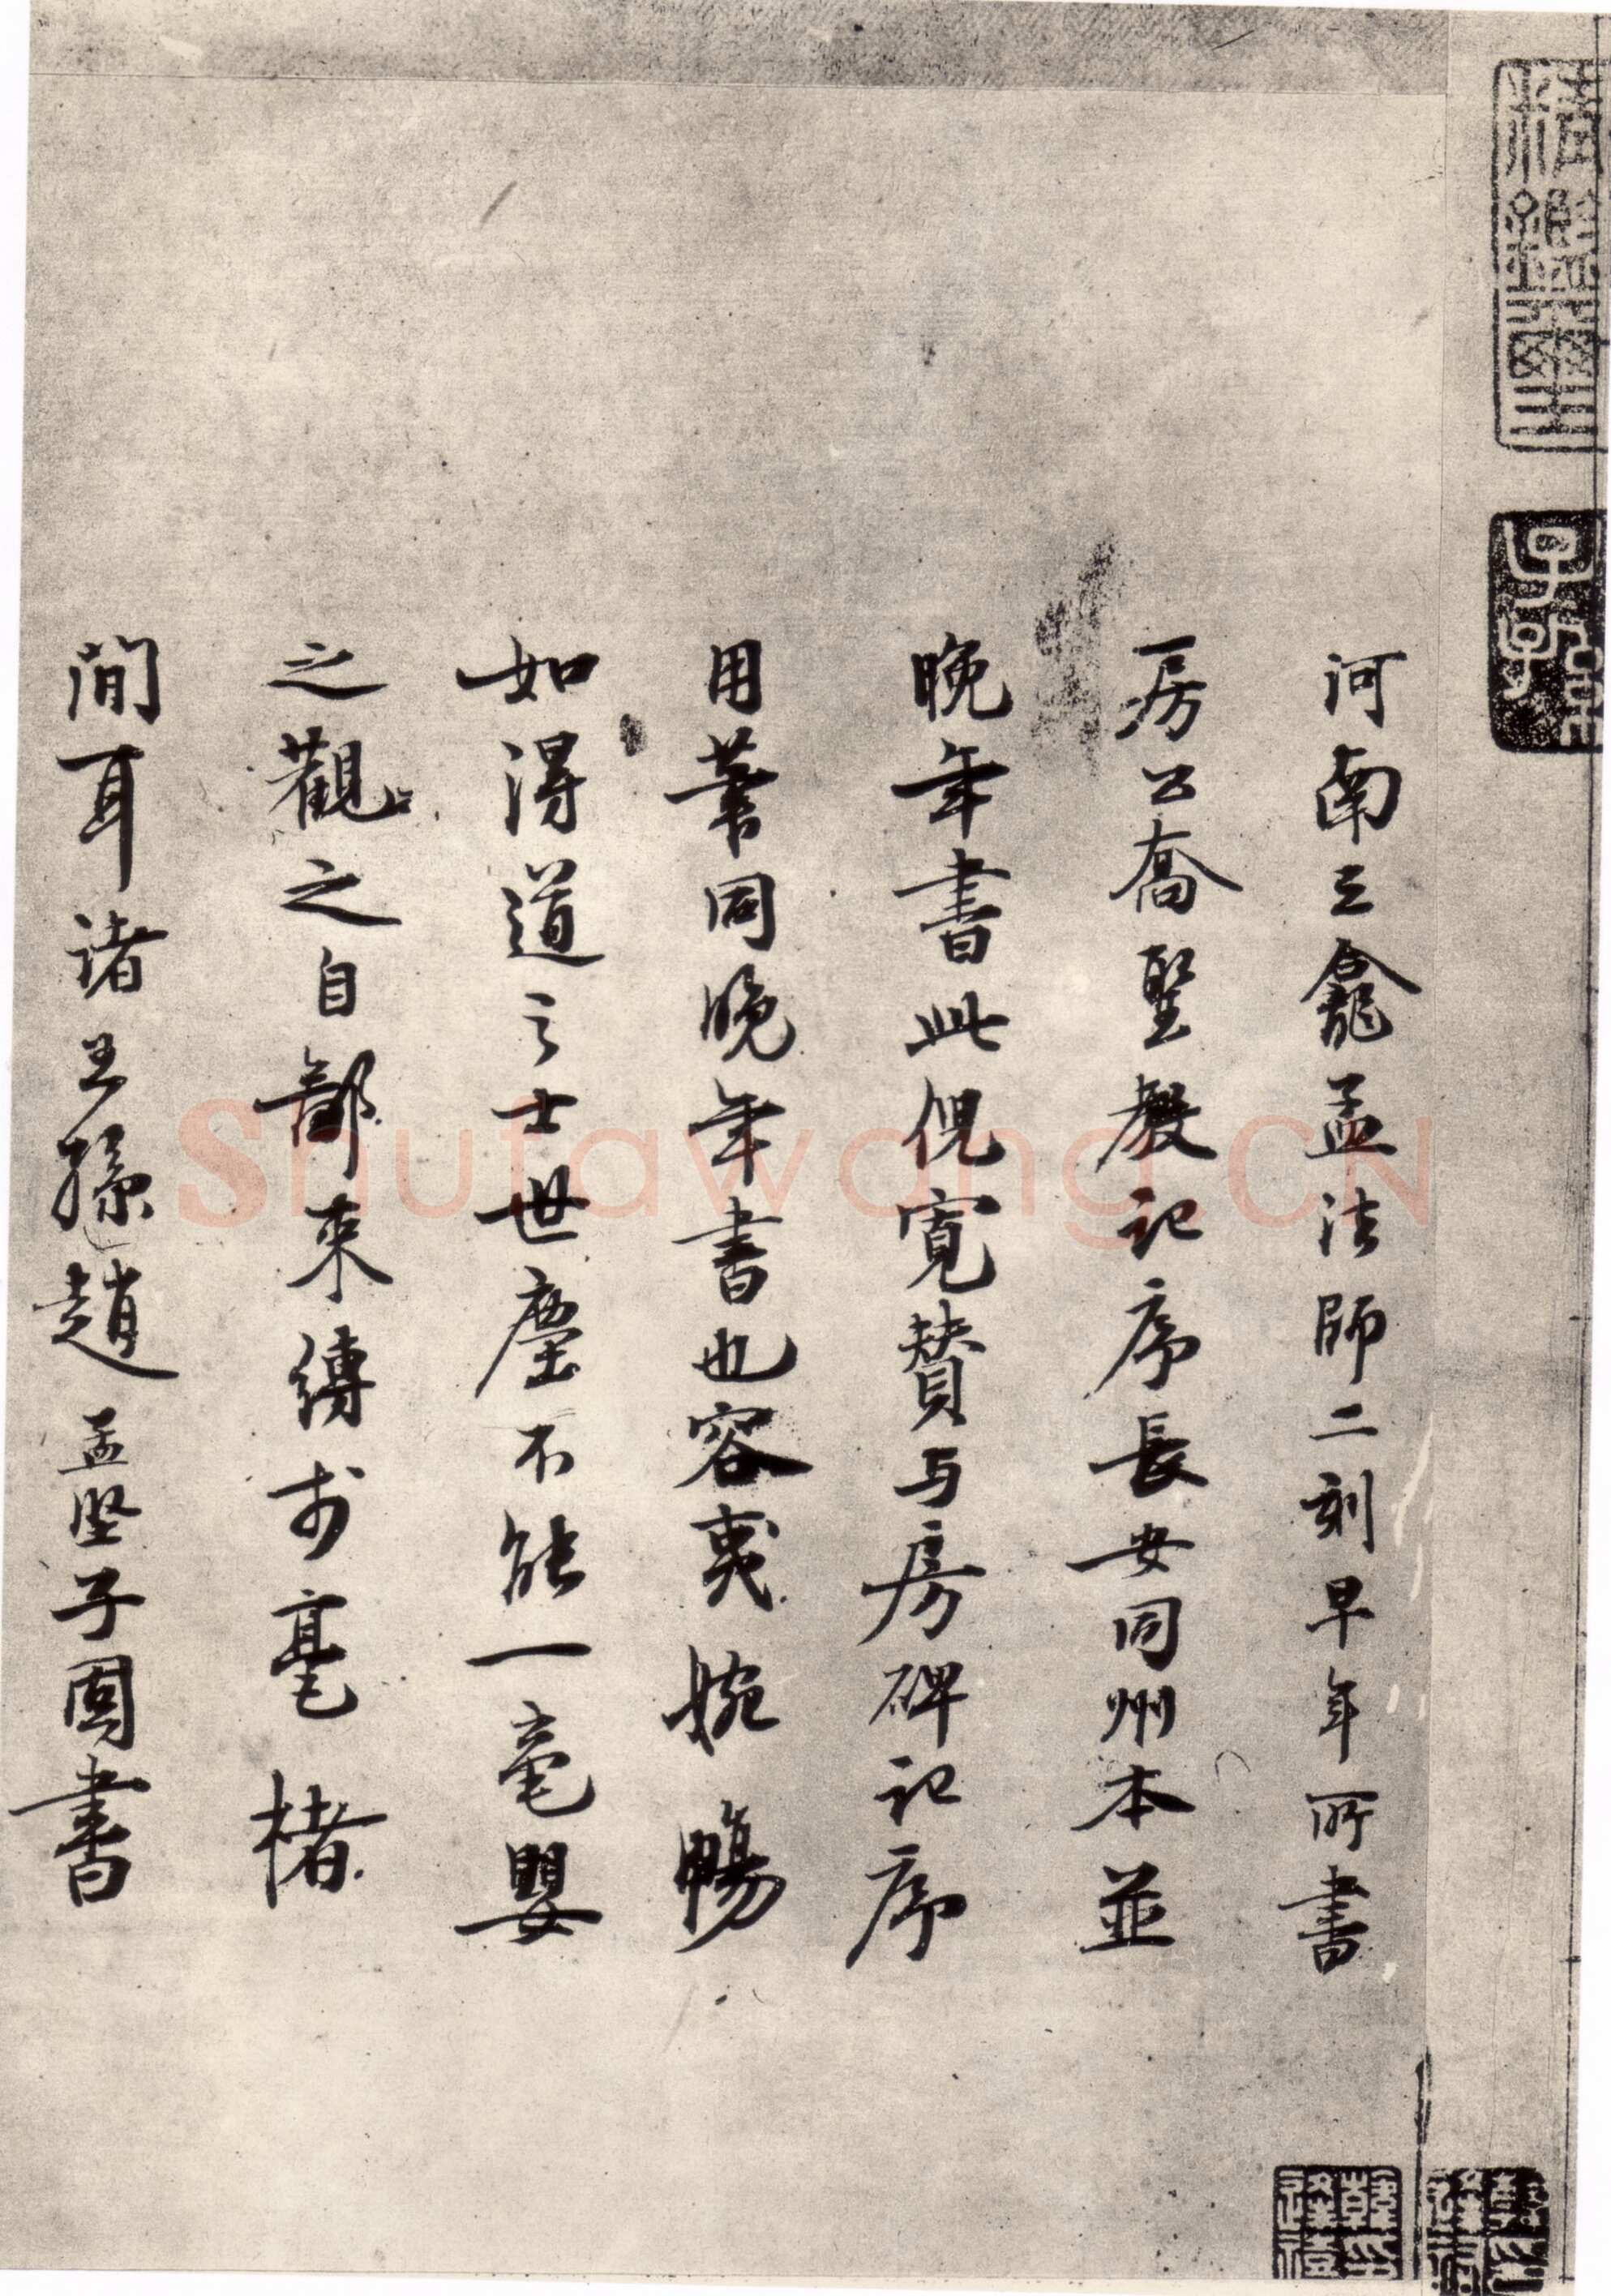 河南三龕孟法師二刻早年所書
房公喬聖教記序長安同州本並
晚年書此倪寬贊与房碑記序
用筆同晚年書也容夷婉暢
如得道之士世塵不能一毫嬰
之觀之自鄙束縛於毫楮
間耳諸王孫趙孟堅子固書
Shufawang.CN